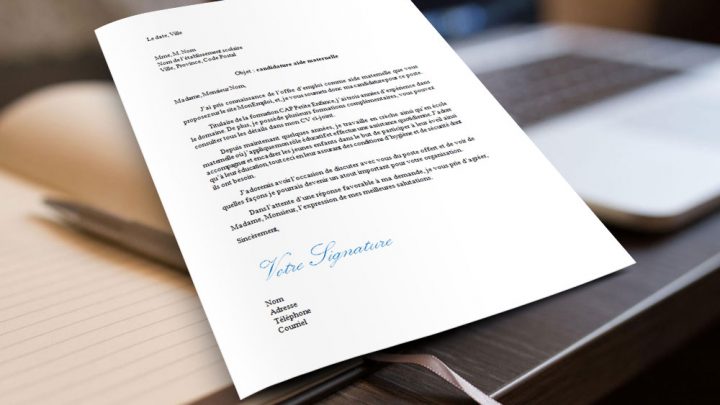 Le date, Ville
Mme, M. Nom
Nom de l'établissement scolaire
Ville, Province, Code Postal
Objet : candidature aide maternelle
Madame, Monsieur Nom,
J'ai pris connaissance de l'offre d'emploi comme aide maternelle que vous
proposez sur le site MonEmploi, et, je vous soumets donc ma candidature pour ce poste.
Titulaire de la formation CAP Petite Enfance, j'ai trois années d'expérience dans
le domaine. De plus, je possède plusieurs formations complémentaires, vous pouvez
consulter tous les détails dans mon CV ci-joint.
Depuis maintenant quelques années, je travaille en crèche ainsi qu'en école
maternelle où j'applique mon rôle éducatif et effectue une assistance quotidienne. J'adore
accompagner et encadrer les jeunes enfants dans le but de participer à leur éveil ainsi
qu'à leur éducation, tout ceci en leur assurant des conditions d'hygiène et de sécurité dont
ils ont besoin.
J'adorerais avoir l'occasion de discuter avec vous du poste offert et de voir de
quelles façons je pourrais devenir un atout important pour votre organisation.
Dans l'attente d'une réponse favorable à ma demande, je vous prie d'agréer,
Madame, Monsieur, l'expression de mes meilleures salutations.
Sincèrement,
Votre Signature
Nom
Adresse
Téléphone
Courriel